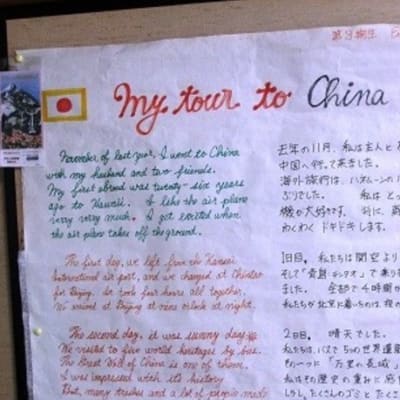 My tour to China
November of last year, I went to China
with my husband and two friends.
My first abroad was twenty-six years
ago to Hawaii. I like the air plane
very very much. I get excited when
the air plane takes off the ground.
The first day, we left from the Kansai
International air port, and we changed at Chintao
for Beijing. It took four hours all together.
We arrived at Beijing at nine o'clock at night.
The second day, it was sunny day
We visited to five world heritages by bus.
The Great Wall of China is one of them.
I was impressed with its history
But, many trashes and a lot of people made
去年の11月、私は主人と
中国へ行って来ました。
海外旅行は、ハネムーンの
ぶりでした。 私は とっ
機が大好きです。 特に、離
わくわく ドキドキ します。
1日目。 私達は 関空より
そして「青島・チンタオ」で 乗り
ました。 全部で 4時間か
私たちが 北京に着いたのは、夜の
2日目。 晴天でした。
私たちは、バスで 5つの世界遺産
その一つに 「万里の長城」
私はその歴史の重みに 感
しかし、たくさんのゴミと たくさ